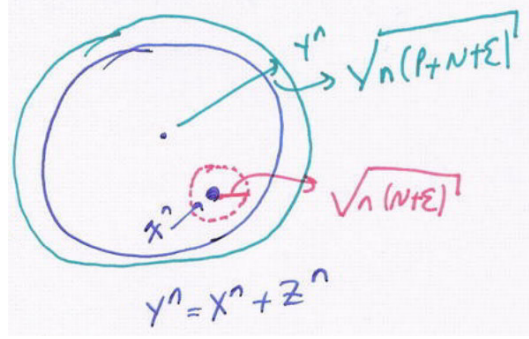 Yⁿ
√n(P+N+ε)
√n(N+ε)
xⁿ
Yⁿ=Xⁿ+Zⁿ